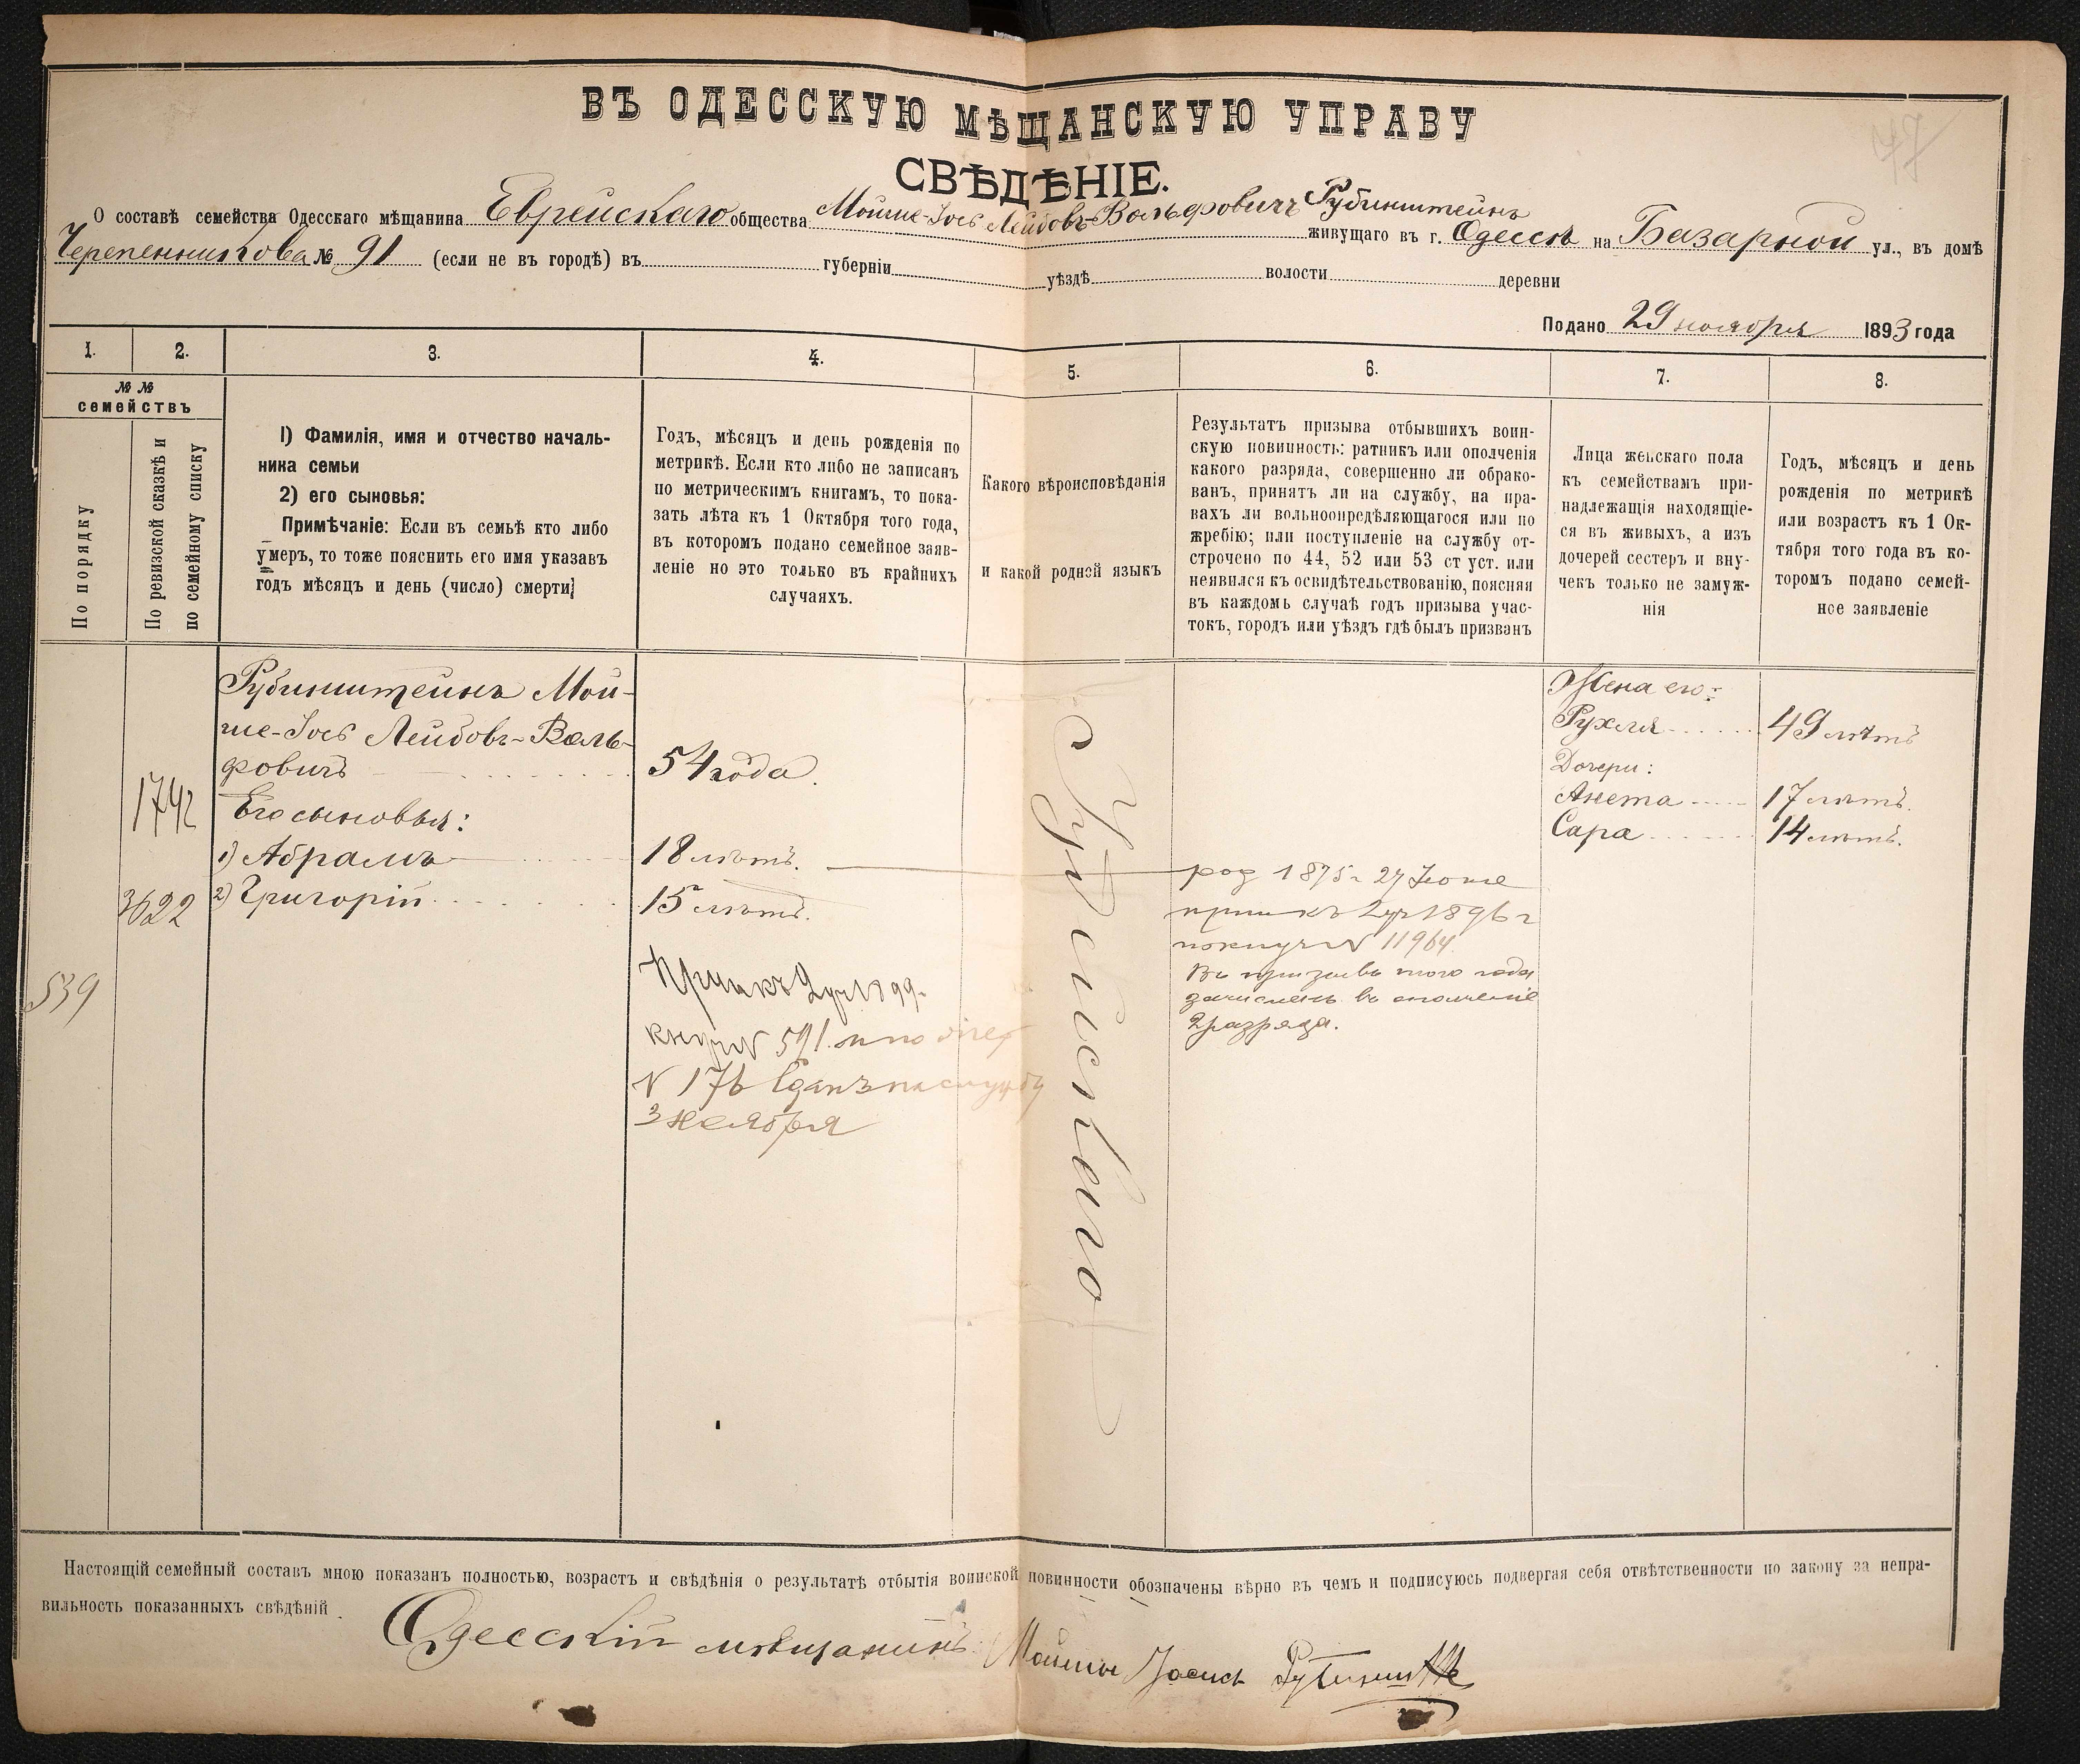 ВЪ ОДЕССКУЮ МѢЩАНСКУЮ УПРАВУ
СВѢДѢНІЕ.
О составѣ семейства Одесскаго мѣщанина Еврейскаго общества Мойше-Іось Лейбовъ-Вольфовичъ Рубинштейнъ живущаго въ г. Одессѣ на Базарной ул., въ домѣ
Черепенникова № 91 (если не въ городѣ) въ губерніи уѣздѣ волости деревни
Подано 29 ноября 1893 года
1. 2. 3. 4. 5. 6. 7. 8.
№ №
семействъ
По порядку
По ревизской сказкѣ и
по семейному списку
1) Фамилія, имя и отчество началь-
ника семьи
2) его сыновья:
Примѣчаніе: Если въ семьѣ кто либо
умеръ, то тоже пояснить его имя указавъ
годъ мѣсяцъ и день (число) смерти
Годъ, мѣсяцъ и день рожденія по
метрикѣ. Если кто либо не записанъ
по метрическимъ книгамъ, то пока-
зать лѣта къ 1 Октября того года,
въ которомъ подано семейное заяв-
леніе но это только въ крайнихъ
случаяхъ.
Какого вѣроисповѣданія
и какой родной языкъ
Результатъ призыва отбывшихъ воин-
скую повинность: ратникъ или ополченія
какого разряда, совершенно ли обрако-
ванъ, принятъ ли на службу, на пра-
вахъ ли вольноопредѣляющагося или по
жребію; или поступленіе на службу от-
строчено по 44, 52 или 53 ст уст. или
неявился къ освидѣтельствованію, поясняя
въ каждомъ случаѣ годъ призыва учас-
токъ, городъ или уѣздъ гдѣ былъ призванъ
Лица женскаго пола
къ семействамъ при-
надлежащія находящіе-
ся въ живыхъ, а изъ
дочерей сестеръ и вну-
чекъ только не замуж-
нія
Годъ, мѣсяцъ и день
рожденія по метрикѣ
или возрастъ къ 1 Ок-
тября того года въ ко-
торомъ подано семей-
ное заявленіе
539
1742
3622
Рубинштейнъ Мой-
ше-Іось Лейбовъ-Воль-
фовичъ
Его сыновья:
1) Абрамъ
2) Григорій
54 года.
18 лѣтъ.
15 лѣтъ.
1899
№ 591. и по
№ 176 Сданъ на службу
3 ноября
Іудейскаго
род 1875 г 27 Іюня
прип къ 2 уч 1896 г
№ 11964
Въ призывъ того года
зачисленъ въ ополченіе
2 разряда.
Жена его:
Рухля
Дочери:
Анета
Сара
49 лѣтъ
17 лѣтъ.
14 лѣтъ.
Настоящій семейный составъ мною показанъ полностью, возрастъ и свѣдѣнія о результатѣ отбытія воинской повинности обозначены вѣрно въ чемъ и подписуюсь подвергая себя отвѣтственности по закону за непра-
вильность показанныхъ свѣдѣній.
Одесскій мѣщанинъ Мойше Іосись